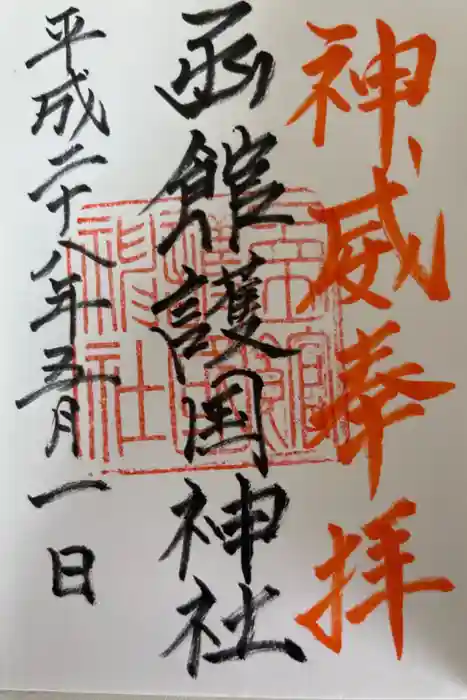 神威奉拝
函館護国神社
平成二十八年五月一日